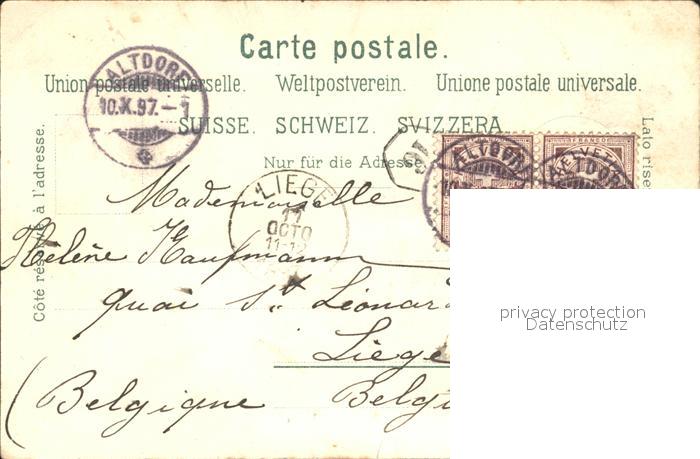 Carte postale.
Union postale universelle. Weltpostverein. Unione postale universale.
SUISSE. SCHWEIZ. SVIZZERA
Nur für die Adresse
Côté réservé à l'adresse.
Lato rise
ALTDORF
10.X.97.-1
LIEGE
11
OCTO
11-12
ALTDOR
FRANCO
HELVETI
TDOR
Mademoiselle
Hélène Kaufmann
quai St Léonar
Liège
(Belgique Belgi
privacy protection
Datenschutz